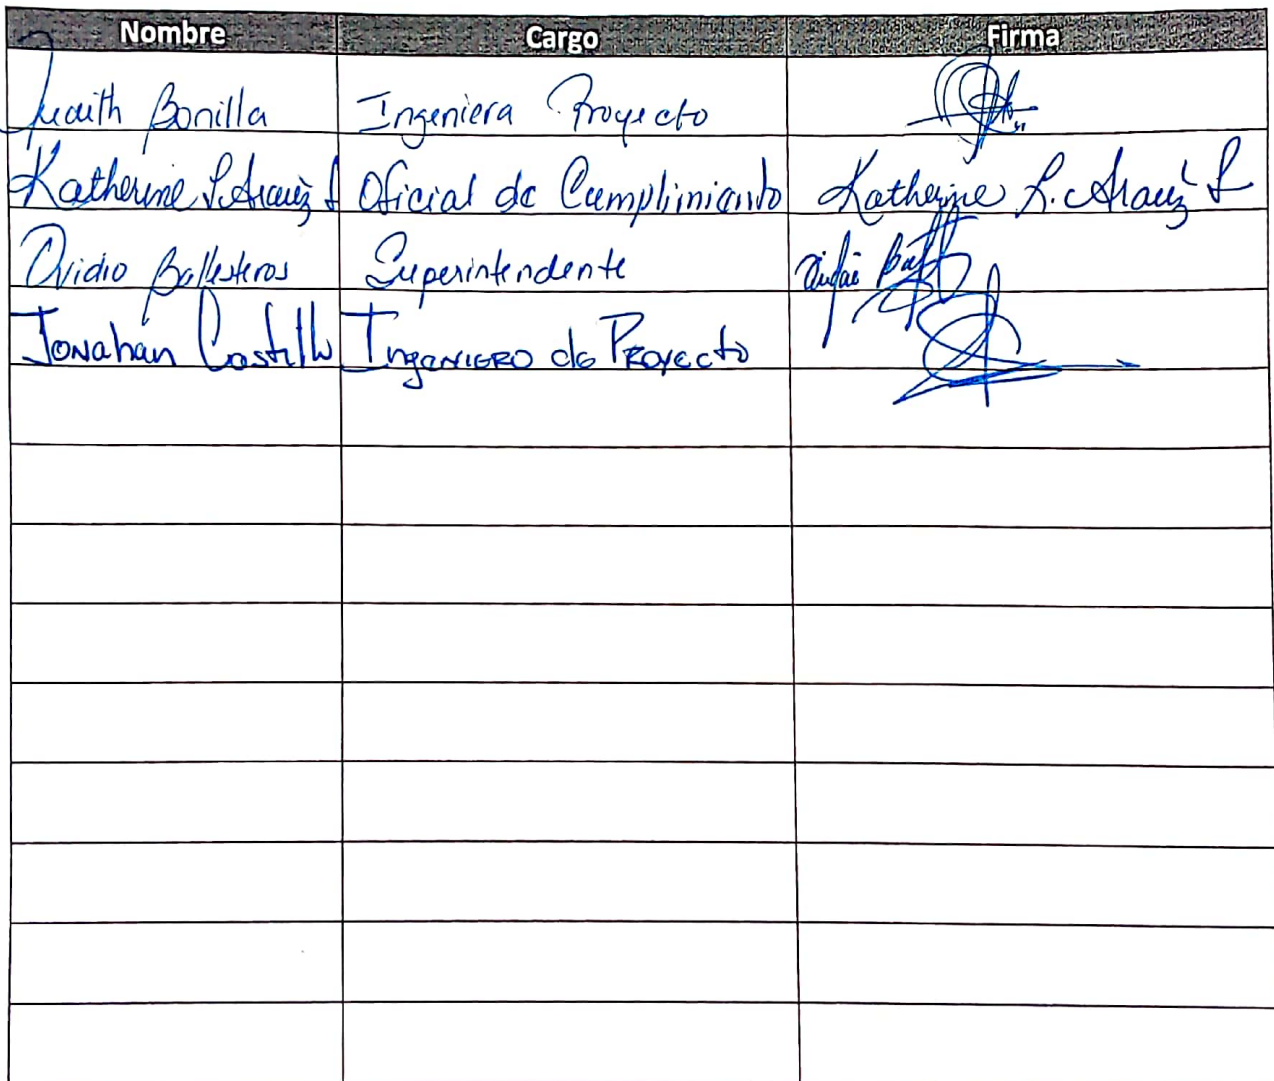 Nombre Cargo Firma
Judith Bonilla Ingeniera Proyecto
Katherine L. Araúz L Oficial de Cumplimiento Katherine L. Araúz L
Ovidio Ballesteros Superintendente
Jonahan Castillo Ingeniero de Proyecto